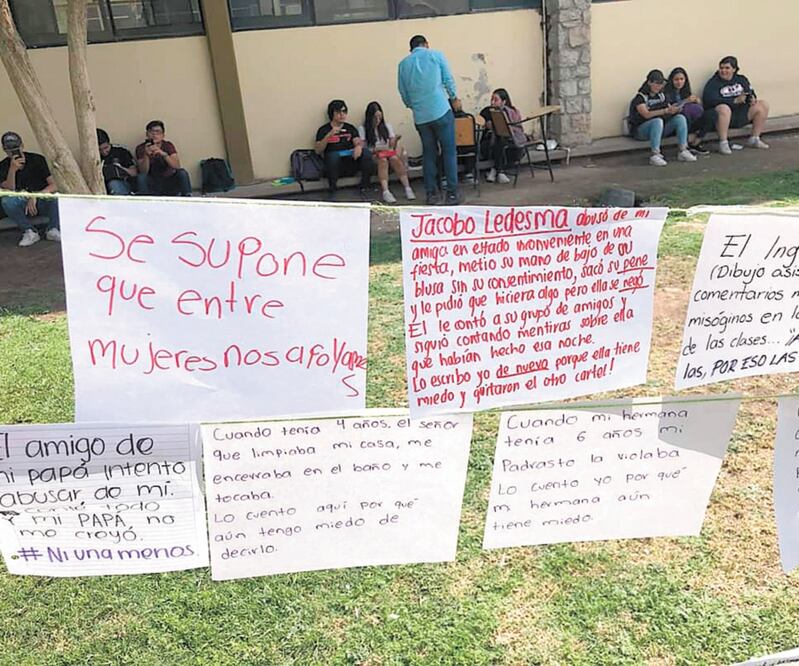 Se supone
que entre
mujeres nos apoyamos
Jacobo Ledesma abusó de mi
amiga en estado inonveniente en una
fiesta, metio su mano de bajo de su
blusa sin su consentimiento, sacó su pene
y le pidió que hiciera algo pero ella se negó
El le contó a su grupo de amigos y
siguió contando mentiras sobre ella
que habían hecho esa noche.
Lo escribo yo de nuevo porque ella tiene
miedo y quitaron el otro cartel!
El Ing
(Dibujo asis
comentarios m
misóginos en l
de las clases...
las, POR ESO LAS
El amigo de
mi papá intento
abusar de mi.
todo
Y mi PAPÁ no
me creyó.
#Ni una menos.
Cuando tenía 4 años, el señor
que limpiaba mi casa, me
encerraba en el baño y me
tocaba.
Lo cuento aquí por qué
aún tengo miedo de
decirlo.
Cuando mi hermana
tenía 6 años mi
Padrasto la violaba
Lo cuento yo por qué
mi hermana aún
tiene miedo.